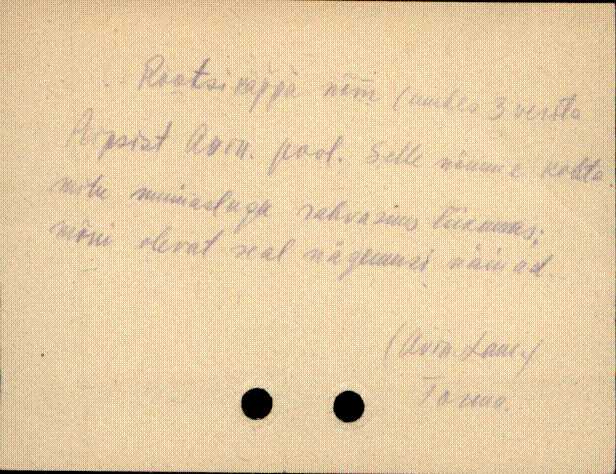 Rootsikäppä nõm (umbes 3 versta
Peipsist Avin. pool. Selle nõmme kohta
mitu muinaslugu rahvasuus liikumas;
mõni olevat seal nägemusi näinud.
(Avin.
Torma.